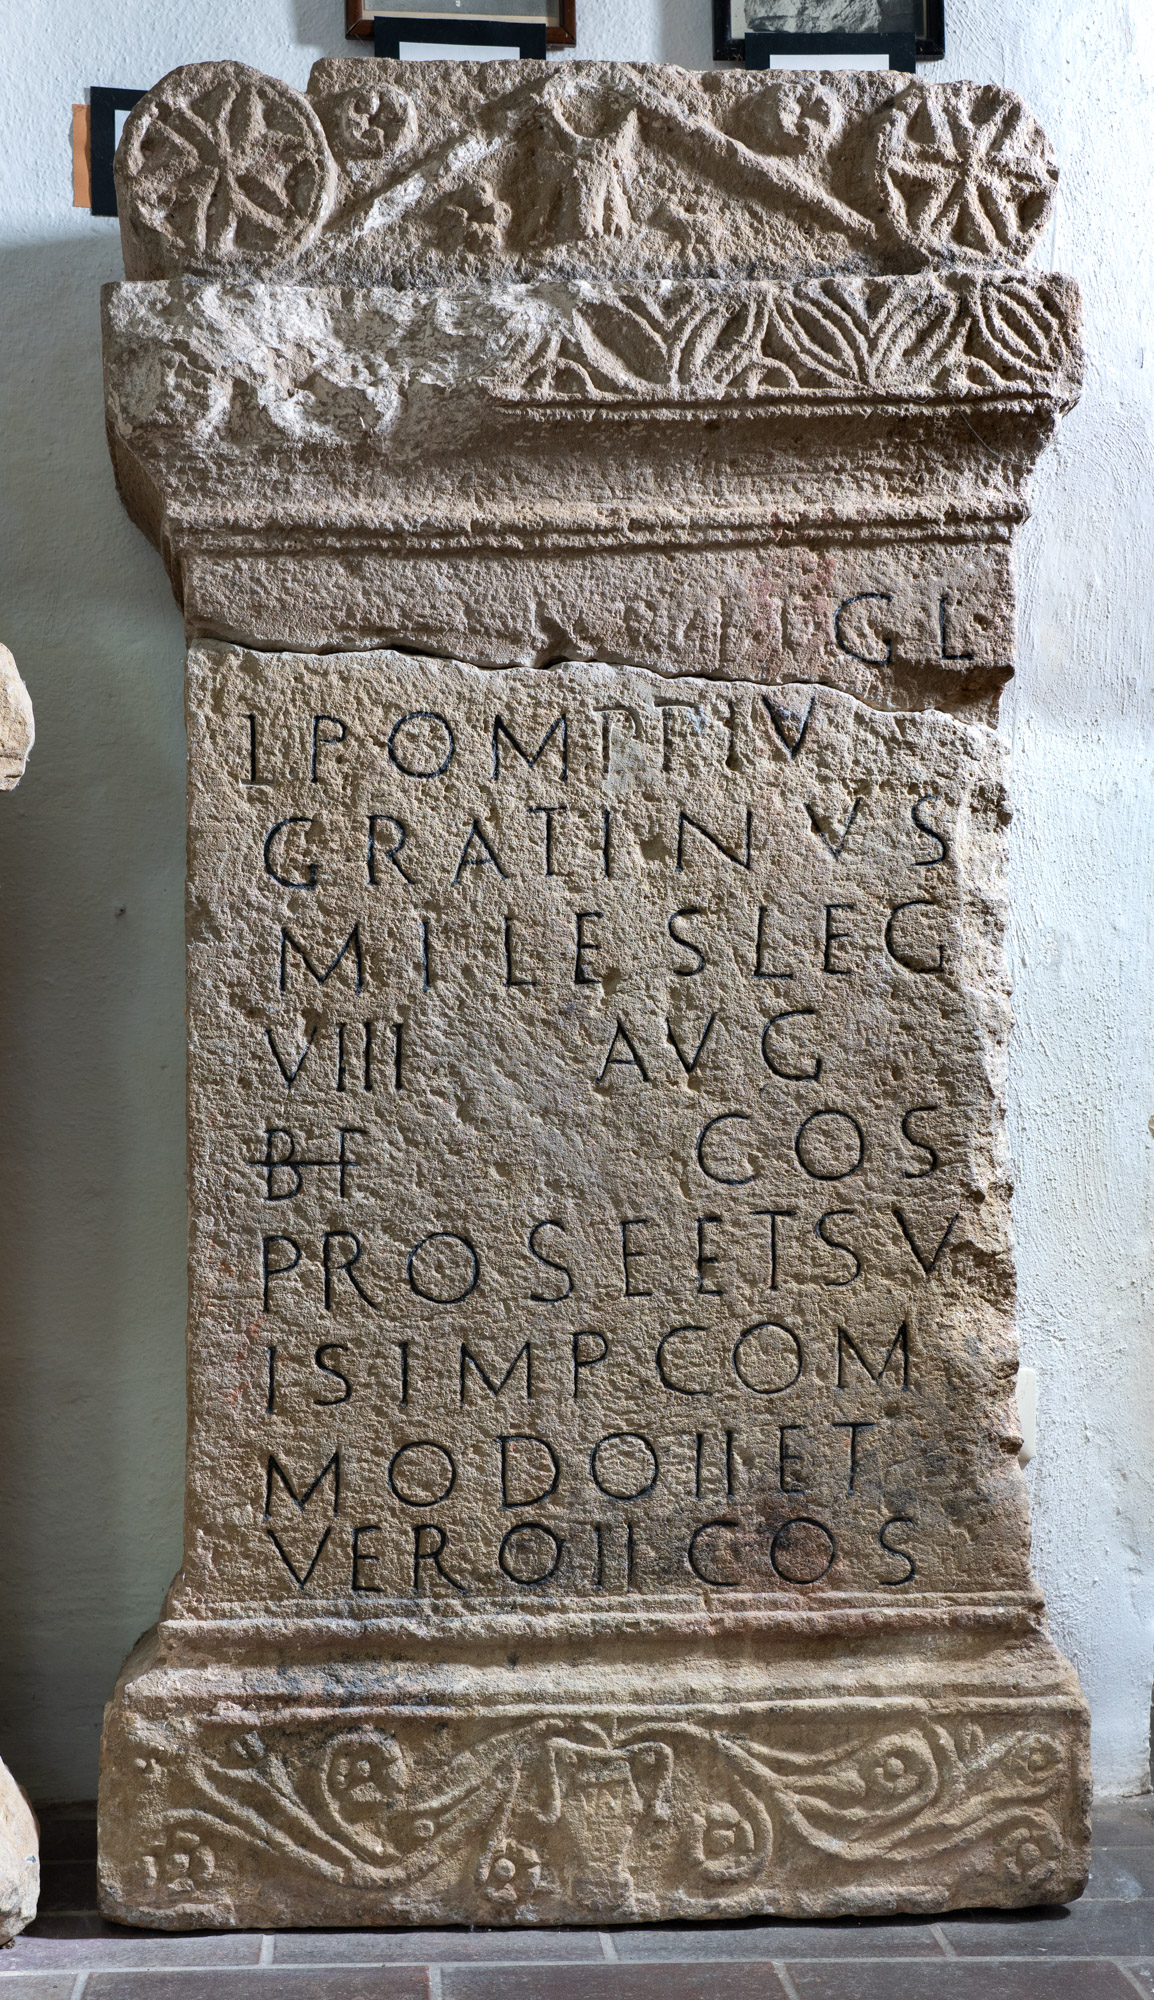 GL
L POMPTIV
GRATINVS
MILES LEG
VIII AVG
BF COS
PRO SE ET SV
IS IMP COM
MODO II ET
VERO II COS